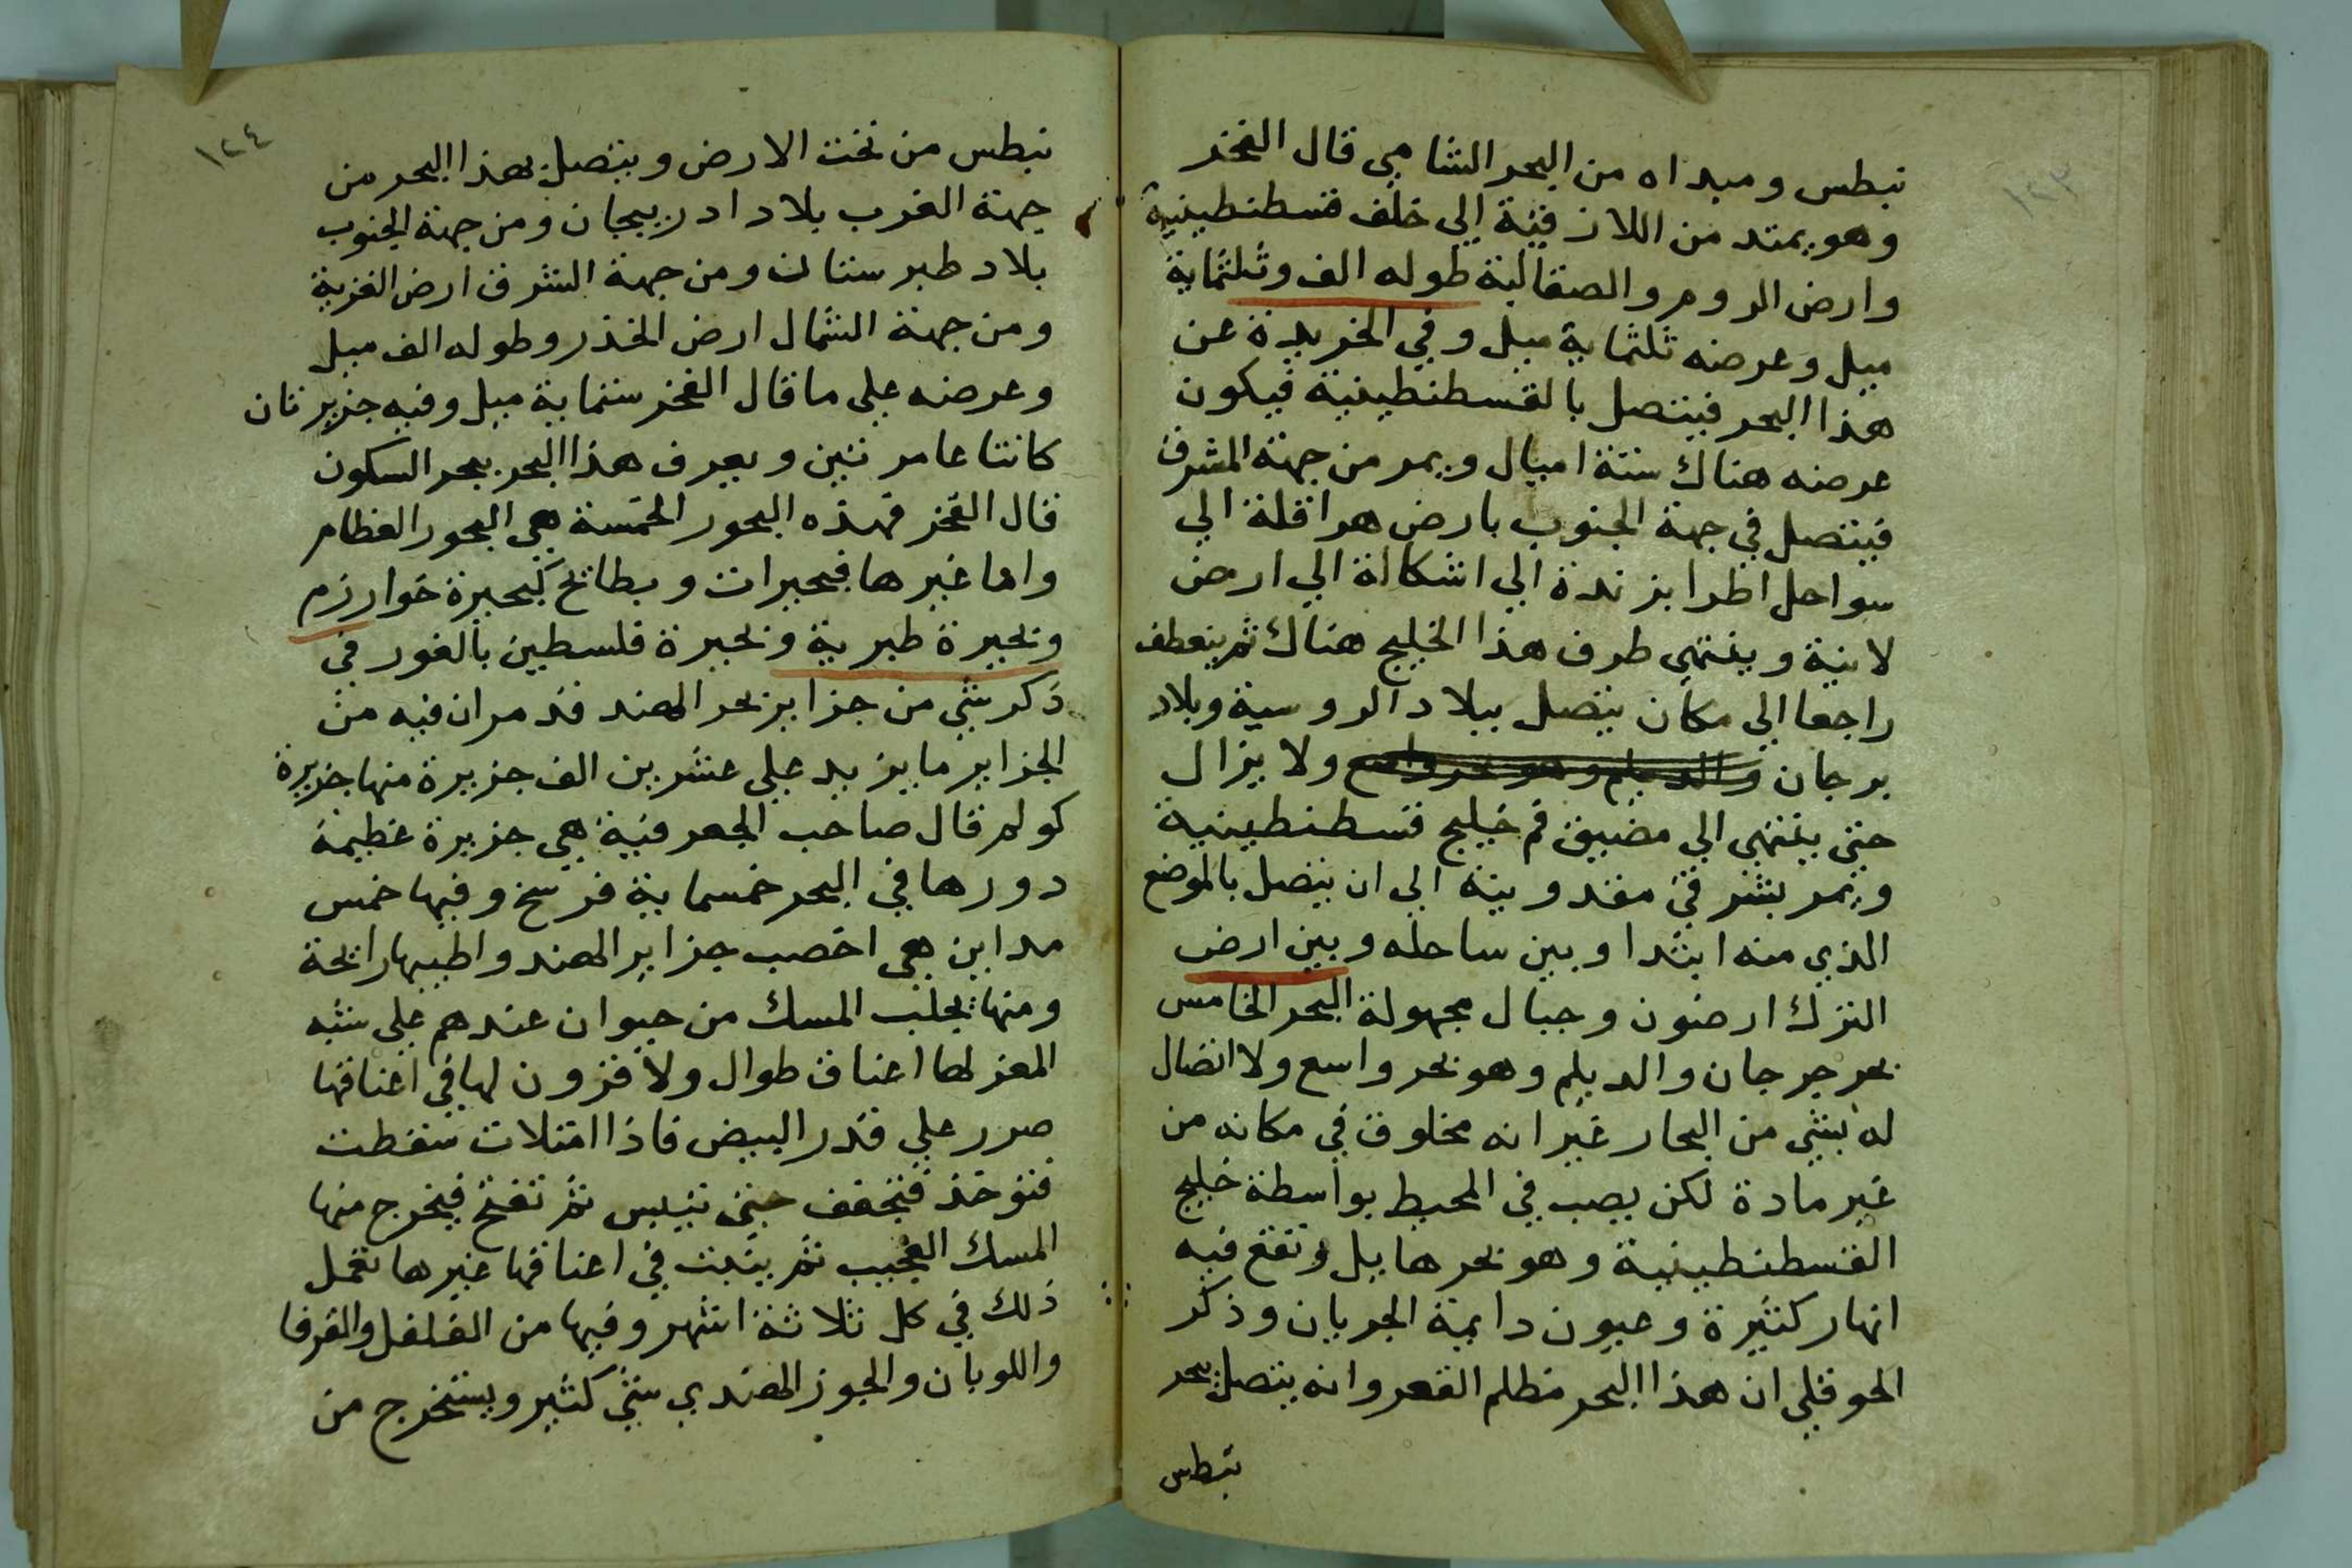 ١٢٣
نبطس ومبداه من البحر الشامي قال الفخر
وهو يمتد من اللاذقية الي خلف قسطنطينية
وارض الروم والصقالبة طوله الف وثلثماية
ميل وعرضه ثلثماية ميل وفي الخريدة عن
هذا البحر فيتصل بالقسطنطينية فيكون
عرضه هناك ستة اميال ويمر من جهة المشرق
فيتصل في جهة الجنوب بارض هراقلة الي
سواحل اطرابزندة الي اشكالة الي ارض
لانية وينتهي طرف هذا الخليج هناك ثم ينعطف
راجعا الي مكان يتصل ببلاد الروسية وبلاد
برجان والديلم وهو بحر واسع ولا يزال
حتي ينتهي الي مضيق فم خليج قسطنطينية
ويمر بشرقي مقدونية الي ان يتصل بالموضع
الذي منه ابتدا وبين ساحله وبين ارض
الترك ارضون وجبال مجهولة البحر الخامس
بحر جرجان والديلم وهو بحر واسع ولا اتصال
له بشي من البحار غير انه مخلوق في مكانه من
غير مادة لكن يصب في المحيط بواسطة خليج
القسطنطينية وهو بحر هايل وتقع فيه
انهار كثيرة وعيون دايمة الجريان وذكر
الحوقلي ان هذا البحر مظلم القعر وانه يتصل ببحر
نبطس
١٢٤
نبطس من تحت الارض ويتصل بهذا البحر من
جهة الغرب بلاد ادربيجان ومن جهة الجنوب
بلاد طبرستان ومن جهة الشرق ارض الغزية
ومن جهة الشمال ارض الخذر وطوله الف ميل
وعرضه علي ما قال الفخر ستماية ميل وفيه جزيرتان
كانتا عامرتين ويعرف هذا البحر ببحر السكون
قال الفخر فهذه البحور الخمسة هي البحور العظام
واما غيرها فبحيرات وبطائح كبحيرة خوارزم
وبحيرة طبرية وبحيرة فلسطين بالغور في
ذكر شي من جزاير بحر الهند قد مر ان فيه من
الجزاير ما يزيد علي عشرين الف جزيرة منها جزيرة
كولم قال صاحب الجعرفية هي جزيرة عظيمة
دورها في البحر خمسماية فرسخ وفيها خمس
مداين هي اخصب جزاير الهند واطيبها رائحة
ومنها يجلب المسك من حيوان عندهم علي شبه
المعز لها اعناق طوال ولا قزون لها في اعناقها
صرر علي قدر البيض فاذا امتلات سقطت
فتوخذ فتجفف حتي تيبس ثم تفتح فيخرج منها
المسك العجيب ثم ينبت في اعناقها غيرها تعمل
ذلك في كل ثلاثة اشهر وفيها من الفلفل والقرفا
واللوبان والجوز الهندي شي كثير ويستخرج من